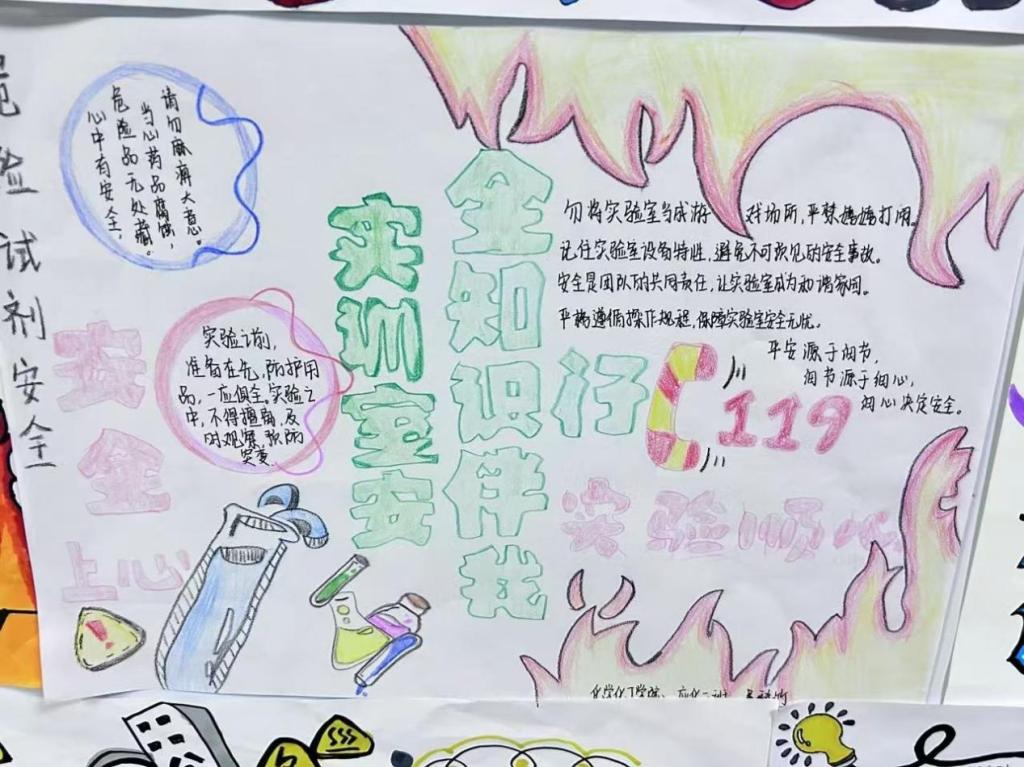 危险试剂安全
请勿麻痹大意。
当心药品腐蚀,
危险品无处藏。
心中有安全,
实训室安
全知识伴我
行
勿将实验室当成游戏场所,严禁嬉嬉打闹。
记住实验室设备特性,避免不可预见的安全事故。
安全是团队的共同责任,让实验室成为和谐家园。
严格遵循操作规程,保障实验室安全无忧。
平安源于细节,
细节源于细心,
细心决定安全。
119
安全上心
实验之前,
准备在先,防护用
品,一应俱全。实验之
中,不得擅离,及
时观察,预防
突变
实验顺心
化学化工学院、应化二班